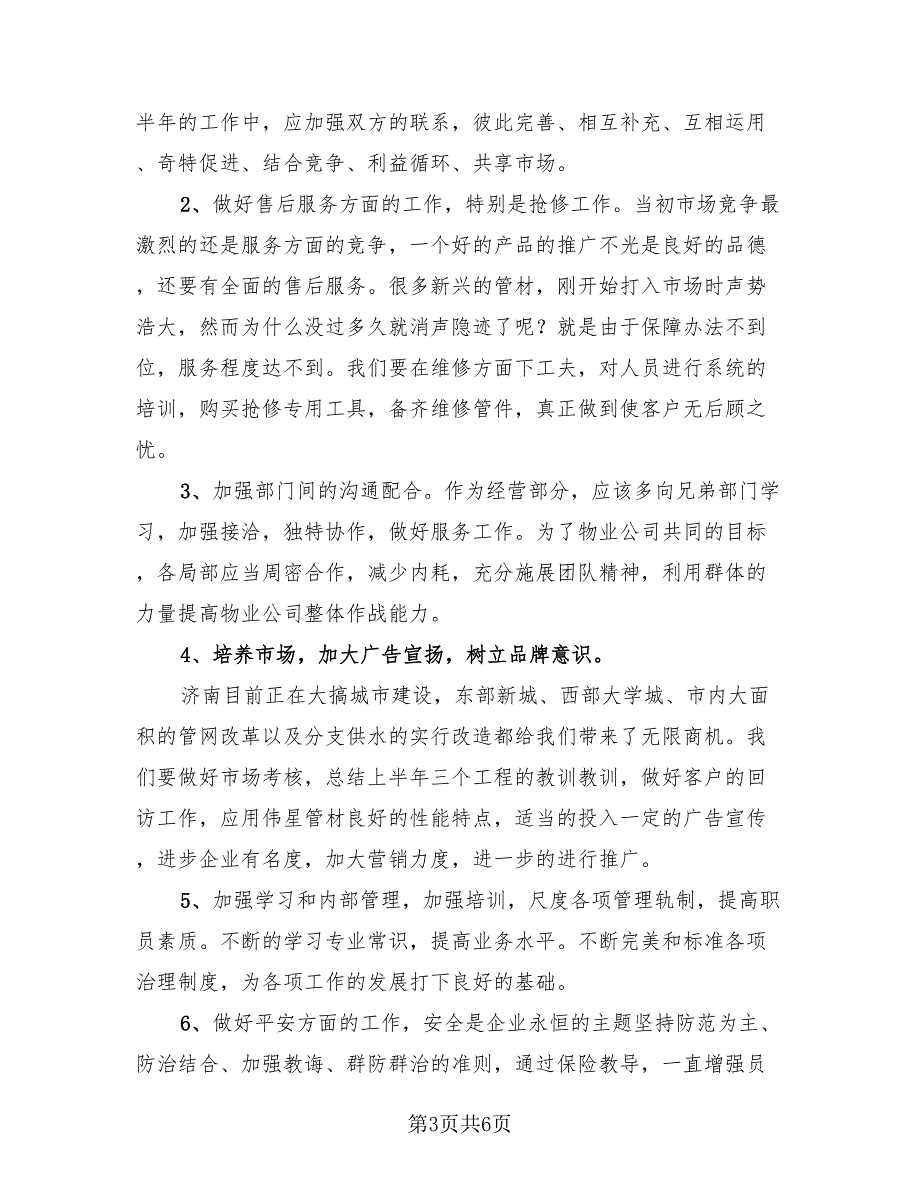 半年的工作中，应加强双方的联系，彼此完善、相互补充、互相运用
、奇特促进、结合竞争、利益循环、共享市场。
2、做好售后服务方面的工作，特别是抢修工作。当初市场竞争最
激烈的还是服务方面的竞争，一个好的产品的推广不光是良好的品德
，还要有全面的售后服务。很多新兴的管材，刚开始打入市场时声势
浩大，然而为什么没过多久就消声隐迹了呢？就是由于保障办法不到
位，服务程度达不到。我们要在维修方面下工夫，对人员进行系统的
培训，购买抢修专用工具，备齐维修管件，真正做到使客户无后顾之
忧。
3、加强部门间的沟通配合。作为经营部分，应该多向兄弟部门学
习，加强接洽，独特协作，做好服务工作。为了物业公司共同的目标
，各局部应当周密合作，减少内耗，充分施展团队精神，利用群体的
力量提高物业公司整体作战能力。
4、培养市场，加大广告宣扬，树立品牌意识。
济南目前正在大搞城市建设，东部新城、西部大学城、市内大面
积的管网改革以及分支供水的实行改造都给我们带来了无限商机。我
们要做好市场考核，总结上半年三个工程的教训教训，做好客户的回
访工作，应用伟星管材良好的性能特点，适当的投入一定的广告宣传
，进步企业有名度，加大营销力度，进一步的进行推广。
5、加强学习和内部管理，加强培训，尺度各项管理轨制，提高职
员素质。不断的学习专业常识，提高业务水平。不断完美和标准各项
治理制度，为各项工作的发展打下良好的基础。
6、做好平安方面的工作，安全是企业永恒的主题坚持防范为主、
防治结合、加强教诲、群防群治的准则，通过保险教导，一直增强员
第3页共6页